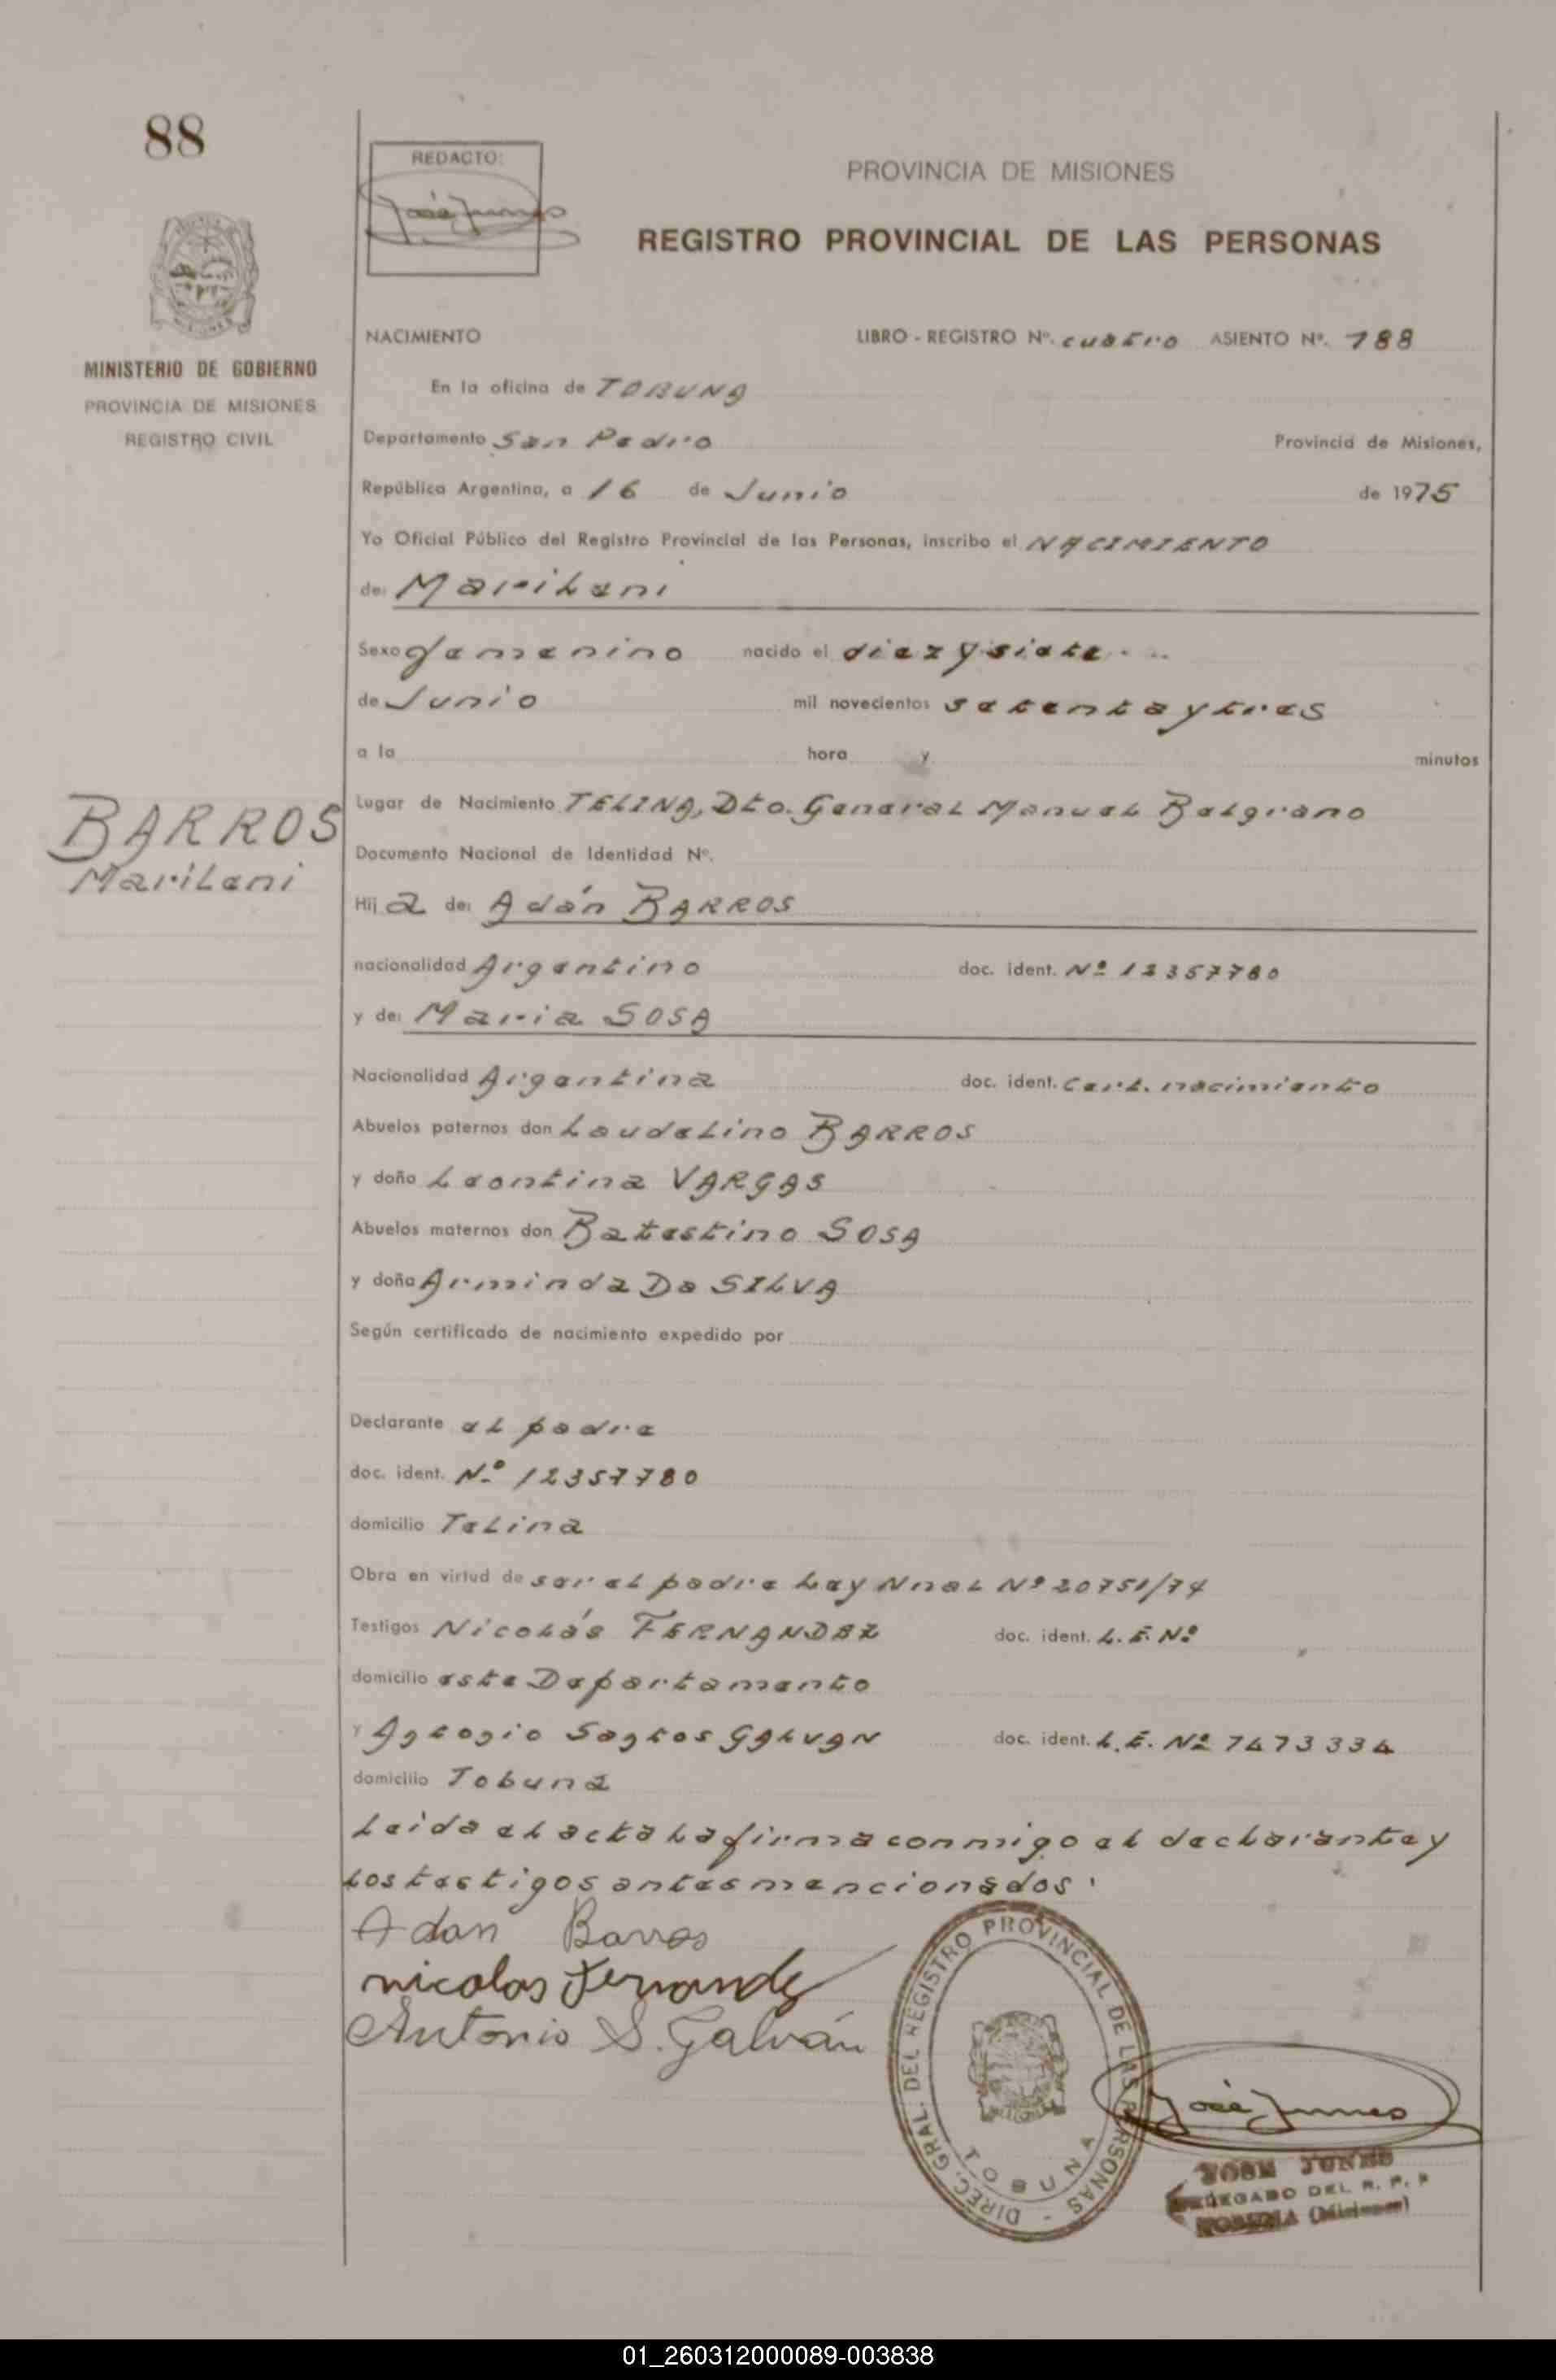 88
REDACTO:
José Junes
PROVINCIA DE MISIONES
REGISTRO PROVINCIAL DE LAS PERSONAS
MINISTERIO DE GOBIERNO
PROVINCIA DE MISIONES
REGISTRO CIVIL
NACIMIENTO LIBRO - REGISTRO Nº. cuatro ASIENTO Nº. 188
En la oficina de TOBUNA
Departamento San Pedro Provincia de Misiones,
República Argentina, a 16 de Junio de 1975
Yo Oficial Público del Registro Provincial de las Personas, inscribo el NACIMIENTO
de: Marileni
Sexo femenino nacido el diez y siete
de Junio mil novecientos setenta y tres
a la hora y minutos
Lugar de Nacimiento TELINA, Dto. General Manuel Belgrano
BARROS
Marileni
Documento Nacional de Identidad Nº.
Hij a de: Adán BARROS
nacionalidad Argentino doc. ident. Nº 12357780
y de: Maria SOSA
Nacionalidad Argentina doc. ident. Cert. nacimiento
Abuelos paternos don Laudelino BARROS
y doña Leontina VARGAS
Abuelos maternos don Batestino SOSA
y doña Arminda Da SILVA
Según certificado de nacimiento expedido por
Declarante el padre
doc. ident. Nº 12357780
domicilio Telina
Obra en virtud de ser el padre Ley Nnal Nº 20751/74
Testigos Nicolás FERNANDEZ doc. ident. L.E. Nº
domicilio este Departamento
y Santos GALVAN doc. ident. L.E. Nº 7473334
domicilio Tobuna
Leida el acta la firma conmigo el declarante y
los testigos antes mencionados.
Adan Barros
nicolas Fernandez
Antonio S. Galván
DIREC. GRAL. DEL REGISTRO PROVINCIAL DE LAS PERSONAS -
TOBUNA
José Junes
JOSE JUNES
DELEGADO DEL R. P. P
TOBUNA (Misiones)
01_260312000089-003838